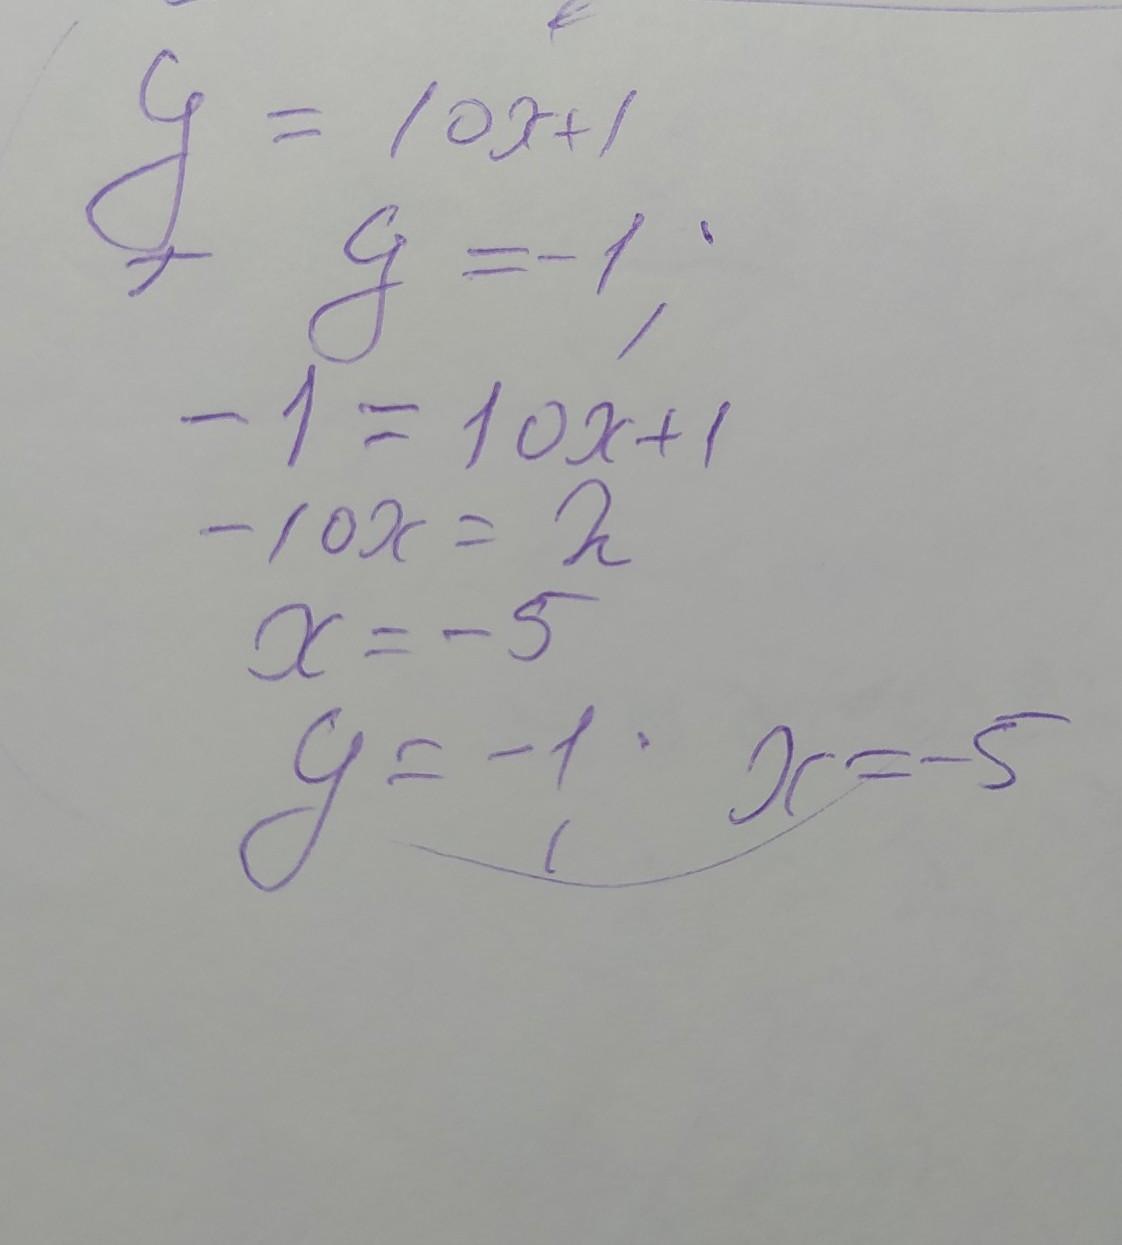 y = 10x+1
y = -1;
-1 = 10x+1
-10x = 2
x = -5
y = -1; x = -5